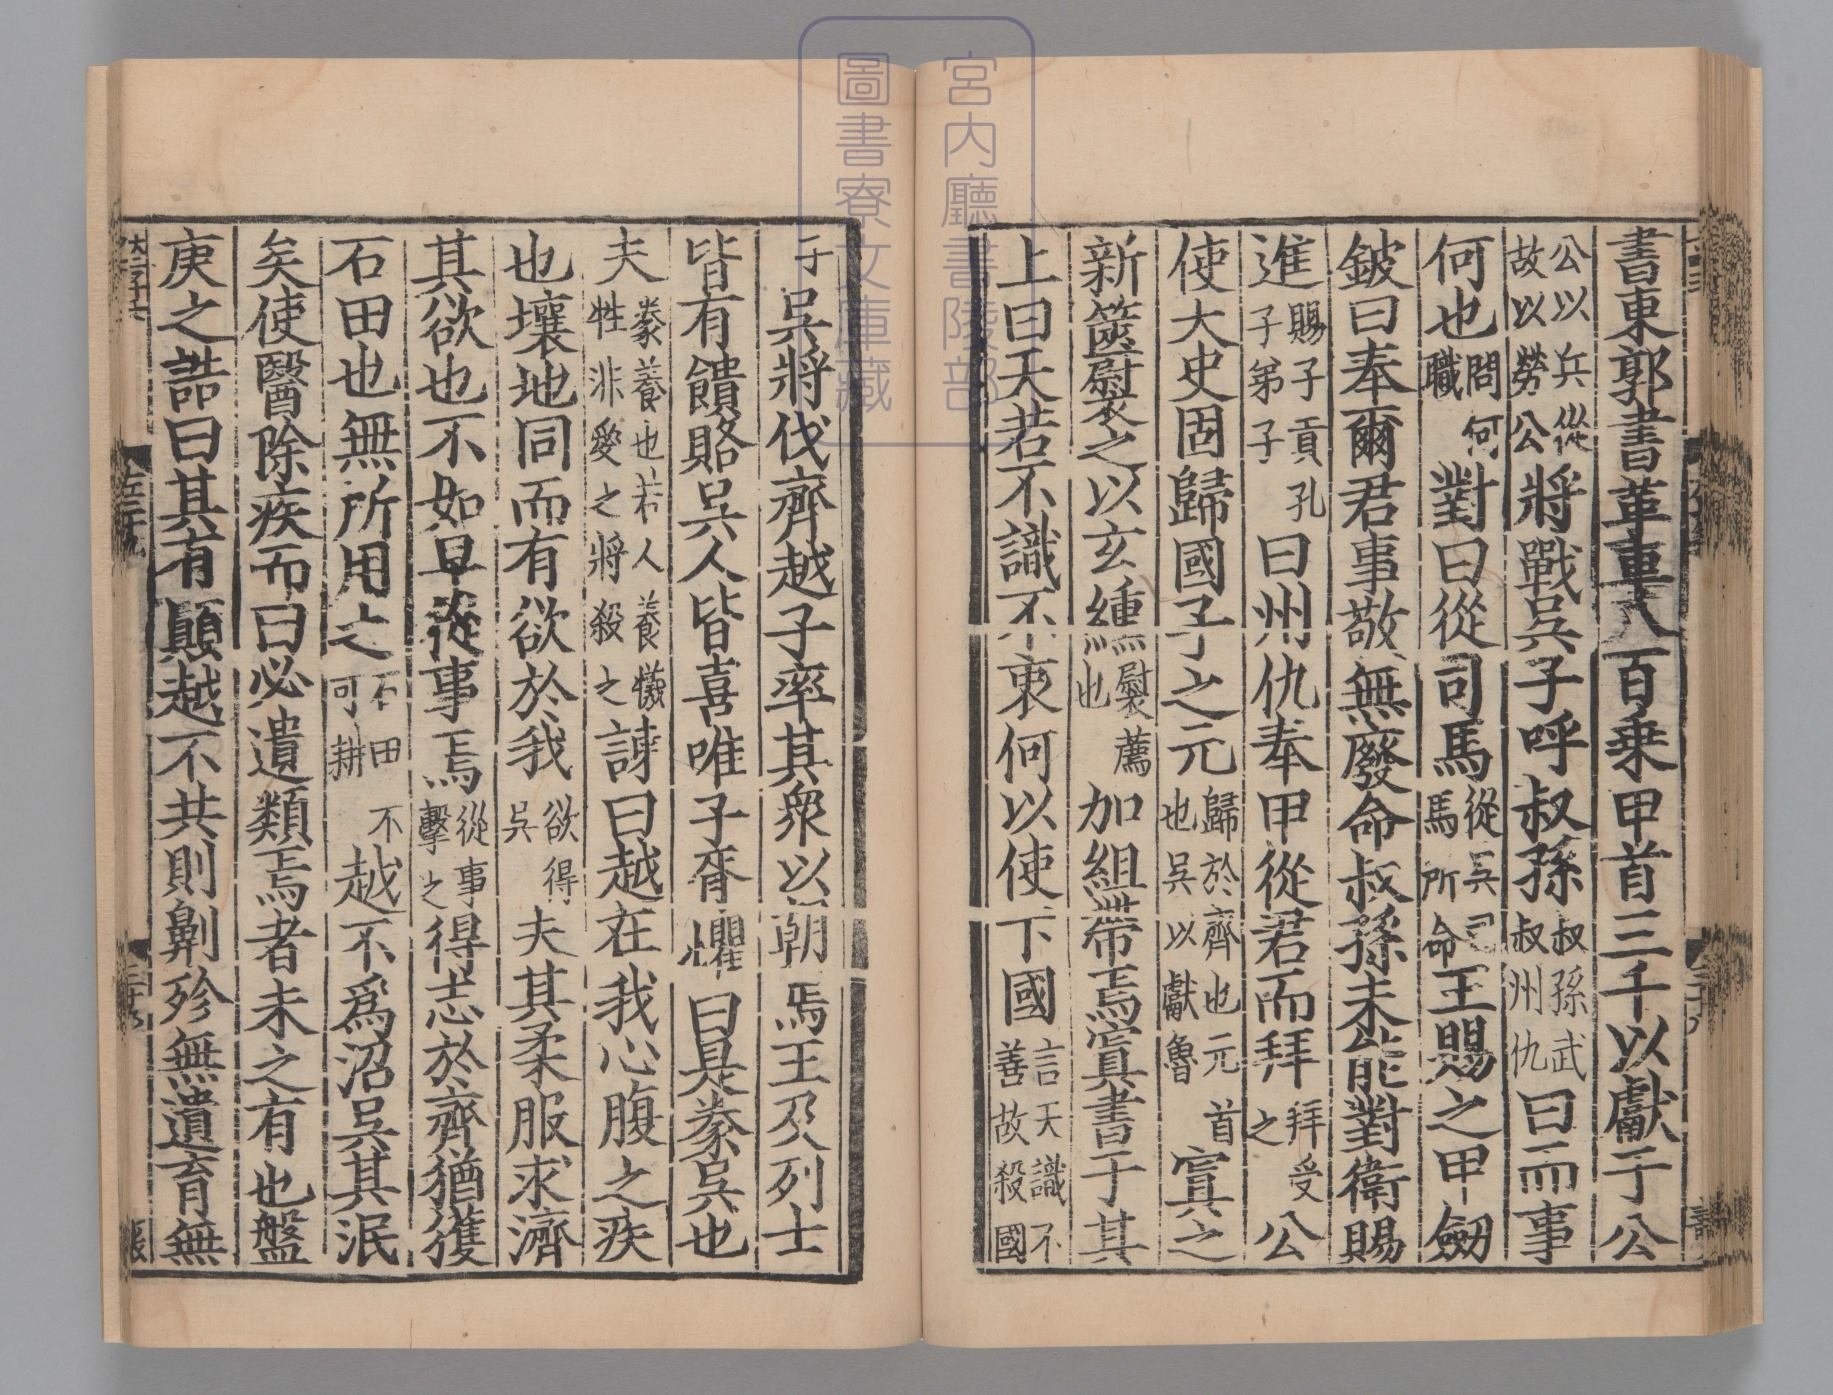 宮内廳書陵部
圖書寮文庫藏
書東郭書革車八百乗甲首三千以獻于公
公以兵從故以勞公將戰吳子呼叔孫叔孫武叔州仇曰而事
何也問何職對曰從司馬從吳司馬所命王賜之甲劒
鈹曰奉爾君事敬無廢命叔孫未能對衛賜
進賜子貢孔子弟子曰州仇奉甲從君而拜拜受之公
使大史固歸國子之元歸於齊也元首也吳以獻魯寘之
新篋褽之以玄纁褽薦也加組帶焉寘書于其
上曰天若不識不衷何以使下國言天識不善故殺國
子吳將伐齊越子率其衆以朝焉王及列士
皆有饋賂吳人皆喜唯子胥懼曰是豢吳也
夫豢養也若人養犧牲非愛之將殺之諫曰越在我心腹之疾
也壤地同而有欲於我欲得吳夫其柔服求濟
其欲也不如早從事焉從事擊之得志於齊猶獲
石田也無所用之石田不可耕越不爲沼吳其泯
矣使醫除疾而曰必遺類焉者未之有也盤
庚之誥曰其有顛越不共則劓殄無遺育無